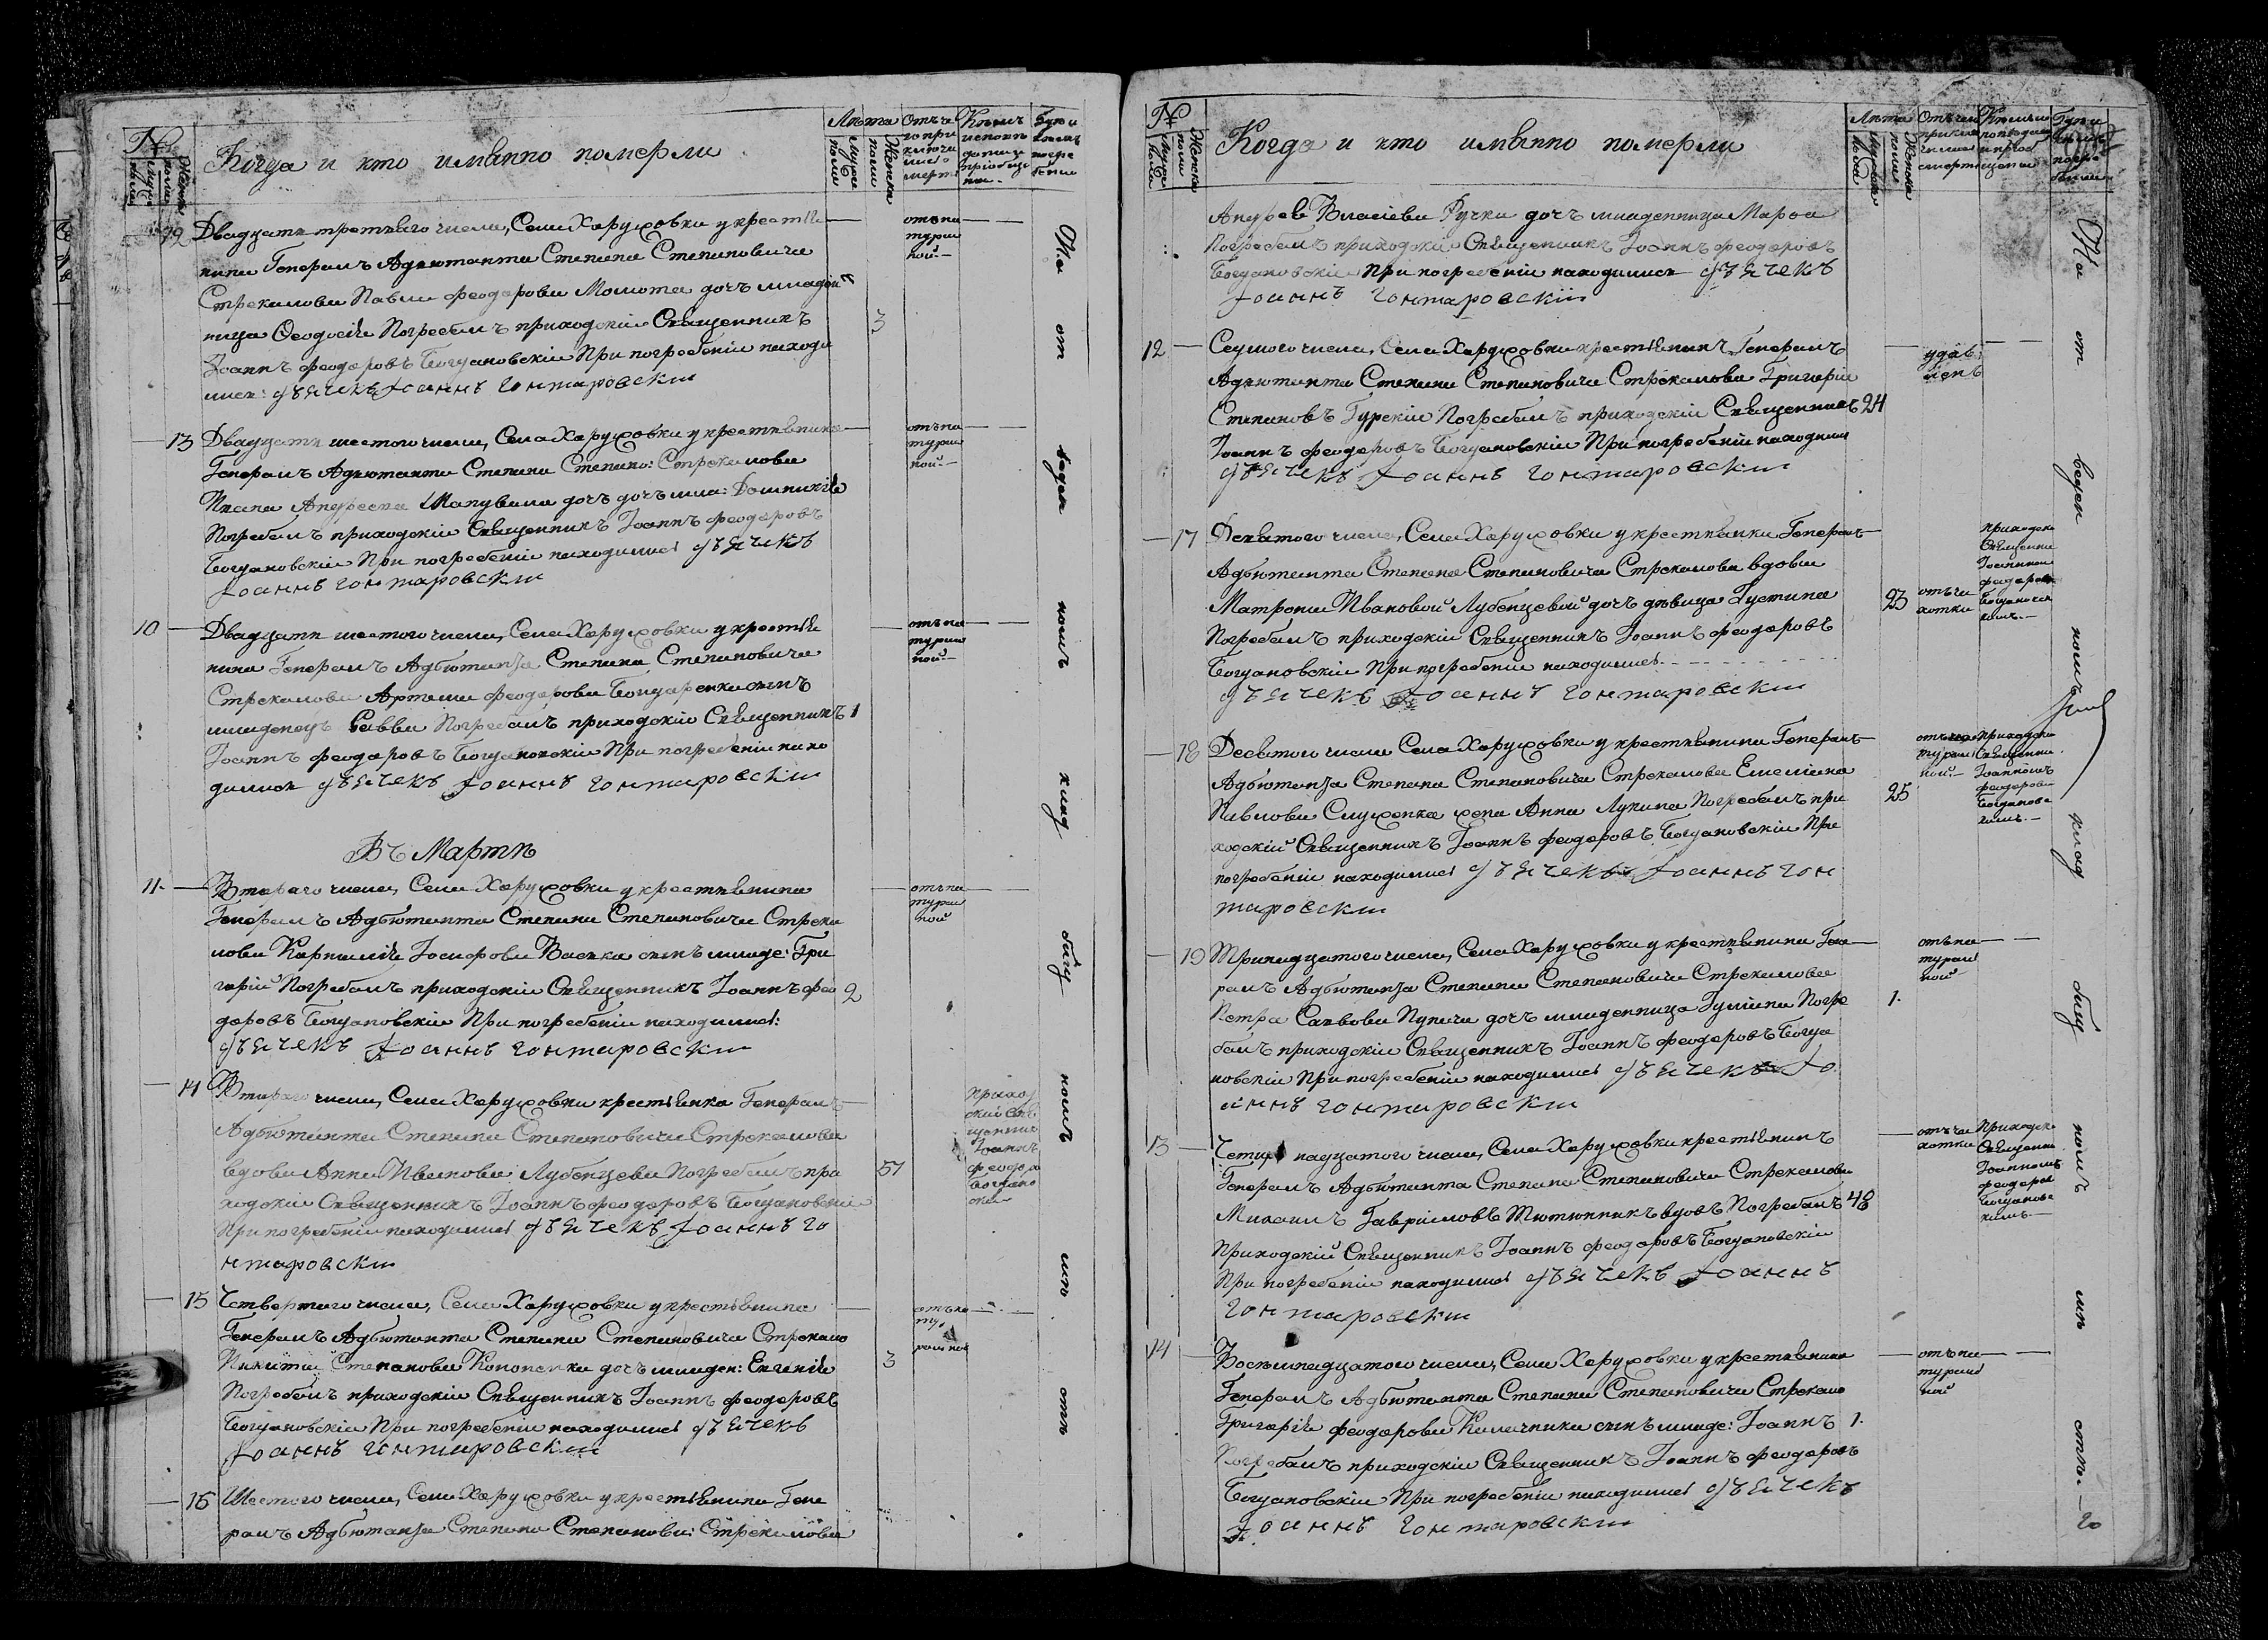 №
мужск: полу
женска полу
Когда и кто имянно померли
Лѣта
мужск полу
женска полу
Отъ чего приключилась смерть
Кѣмъ исповѣданы и приобщены
Гдѣ и кѣмъ погребены
12 Двадцать третьяго числа, Села Харуховки у крестья
нина Генералъ Адъютанта Степана Степановича
Стрекалова Павла Феодорова Момота дочъ младен
ница Феодосія Погребалъ приходскій Священникъ 3
Іоаннъ Феодоровъ Богдановскій При погребеніи находи
лися: дъячекъ Іоаннъ Гонтаровскій
отъ на
турал
ной
13 Двадцать шестого числа, Села Харуховки у крестьянина
Генералъ Адъютанта Степана Степано: Стрекалова
Ивана Андреева дочъ дочъ мла: Домникія
Погребалъ приходскій Священникъ Іоаннъ Феодоровъ
Богдановскій При погребеніи находился дъячекъ
Іоаннъ Гонтаровскій
отъ на
турал
ной
10 Двадцать шестого числа, Села Харуховки у крестья
нина Генералъ Адъютанта Степана Степановича
Стрекалова Артема Феодорова Бондаренка сынъ
младенецъ Савва Погребалъ приходскій Священникъ 1
Іоаннъ Феодоровъ Богдановскій При погребеніи нахо
дился дъячекъ Іоаннъ Гонтаровскій
отъ на
турал
ной
Въ Мартѣ
11. Втораго числа, Села Харуховки у крестьянина
Генералъ Адъютанта Степана Степановича Стрека
лова Корнилія Іосифова сынъ младе: Гри
горій Погребалъ приходскій Священникъ Іоаннъ Фео 2
доровъ Богдановскій При погребеніи находился:
дъячекъ Іоаннъ Гонтаровскій
отъ на
турал
ной
14 Втораго числа, Села Харуховки крестьянка Генералъ
Адъютанта Степана Степановича Стрекалова
вдова Анна Иванова Лубенцева Погребалъ при 51
ходскій Священникъ Іоаннъ Феодоровъ Богдановскій
При погребеніи находился дъячекъ Іоаннъ Го
нтаровскій
Приход
скій Свя
щенник
Іоаннъ
Феодоро
Богдано
скій
15 Четвертаго числа, Села Харуховки у крестьянина
Генералъ Адъютанта Степана Степановича Стрекало
Никиты Степанова Кононенка дочъ младен: Евгенія 3
Погребалъ приходскій Священникъ Іоаннъ Феодоровъ
Богдановскій При погребеніи находился дъячекъ
Іоаннъ Гонтаровскій
отъ на
ту
ралной
16 Шестого числа, Села Харуховки у крестьянина Гене
ралъ Адъютанта Степана Степанови: Стрекалова
На от веден номъ клад бищ номъ мѣ стѣ
№
мужск полу
женска полу
Когда и кто имянно померли
Лѣта
мужск пола
женска полу
Отъ чего приключилась смерть
Кѣмъ исповѣданы и приобщены
Гдѣ и кѣмъ погребены
Андрея Власіева Ручки дочъ младенница Марфа
Погребалъ приходскій Священникъ Іоаннъ Феодоровъ
Богдановскій При погребеніи находился дъячекъ
Іоаннъ Гонтаровскій
12 Седмого числа, Села Харуховки крестьянинъ Генералъ
Адъютанта Степана Степановича Стрекалова Григорій
Степановъ Гурскій Погребалъ приходскій Священникъ 24
Іоаннъ Феодоровъ Богдановскій При погребеніи находился
дъячекъ Іоаннъ Гонтаровскій
удав
ленъ
17 Девятого числа, Села Харуховки у крестьянки Генералъ
Адъютанта Степана Степановича Стрекалова вдовы
Матроны Ивановой Лубенцевой дочъ дѣвица Іустина 23
Погребалъ приходскій Священникъ Іоаннъ Феодоровъ
Богдановскій При погребеніи находился
дъячекъ Іоаннъ Гонтаровскій
отъ ча
хотки
приходски
Священни
Іоанном
Феодоро
Богдановск
имъ
18 Десятого числа Села Харуховки у крестьянина Генералъ
Адъютанта Степана Степановича Стрекалова Емеліана
Павлова жена Анна Лукина Погребалъ при 25
ходскій Священникъ Іоаннъ Феодоровъ Богдановскій При
погребеніи находился дъячекъ Іоаннъ Гон
таровскій
отъ на
турал
ной
Приходски
Священни
Іоанномъ
Феодоров
Богданово
кимъ
19 Тринадцатого числа, Села Харуховки у крестьянина Гене
ралъ Адъютанта Степана Степановича Стрекалова
Петра Саввова дочъ младенница Іуліана Погре 1.
балъ приходскій Священникъ Іоаннъ Феодоровъ Богда
новскій При погребеніи находился дъячекъ Іо
аннъ Гонтаровскій
отъ на
турал
ной
13 Четырнадцатого числа, Села Харуховки крестьянинъ
Генералъ Адъютанта Степана Степановича Стрекалова
Михаилъ Гавріиловъ Тютюнникъ вдовъ Погребалъ 48
Приходскій Священникъ Іоаннъ Феодоровъ Богдановскій
При погребеніи находился дъячекъ Іоаннъ
Гонтаровскій
отъ ча
хотки
Приходски
Священни
Іоанномъ
Феодоро
Богданово
кимъ
14 Восемнадцатого числа, Села Харуховки у крестьянина
Генералъ Адъютанта Степана Степановича Стрекало
Григорія Феодорова Калачника сынъ младе: Іоаннъ 1.
Погребалъ приходскій Священникъ Іоаннъ Феодоровъ
Богдановскій При погребеніи находился дъячекъ
Іоаннъ Гонтаровскій
отъ на
турал
ной
На от веден номъ клад бищ номъ мѣ стѣ
20